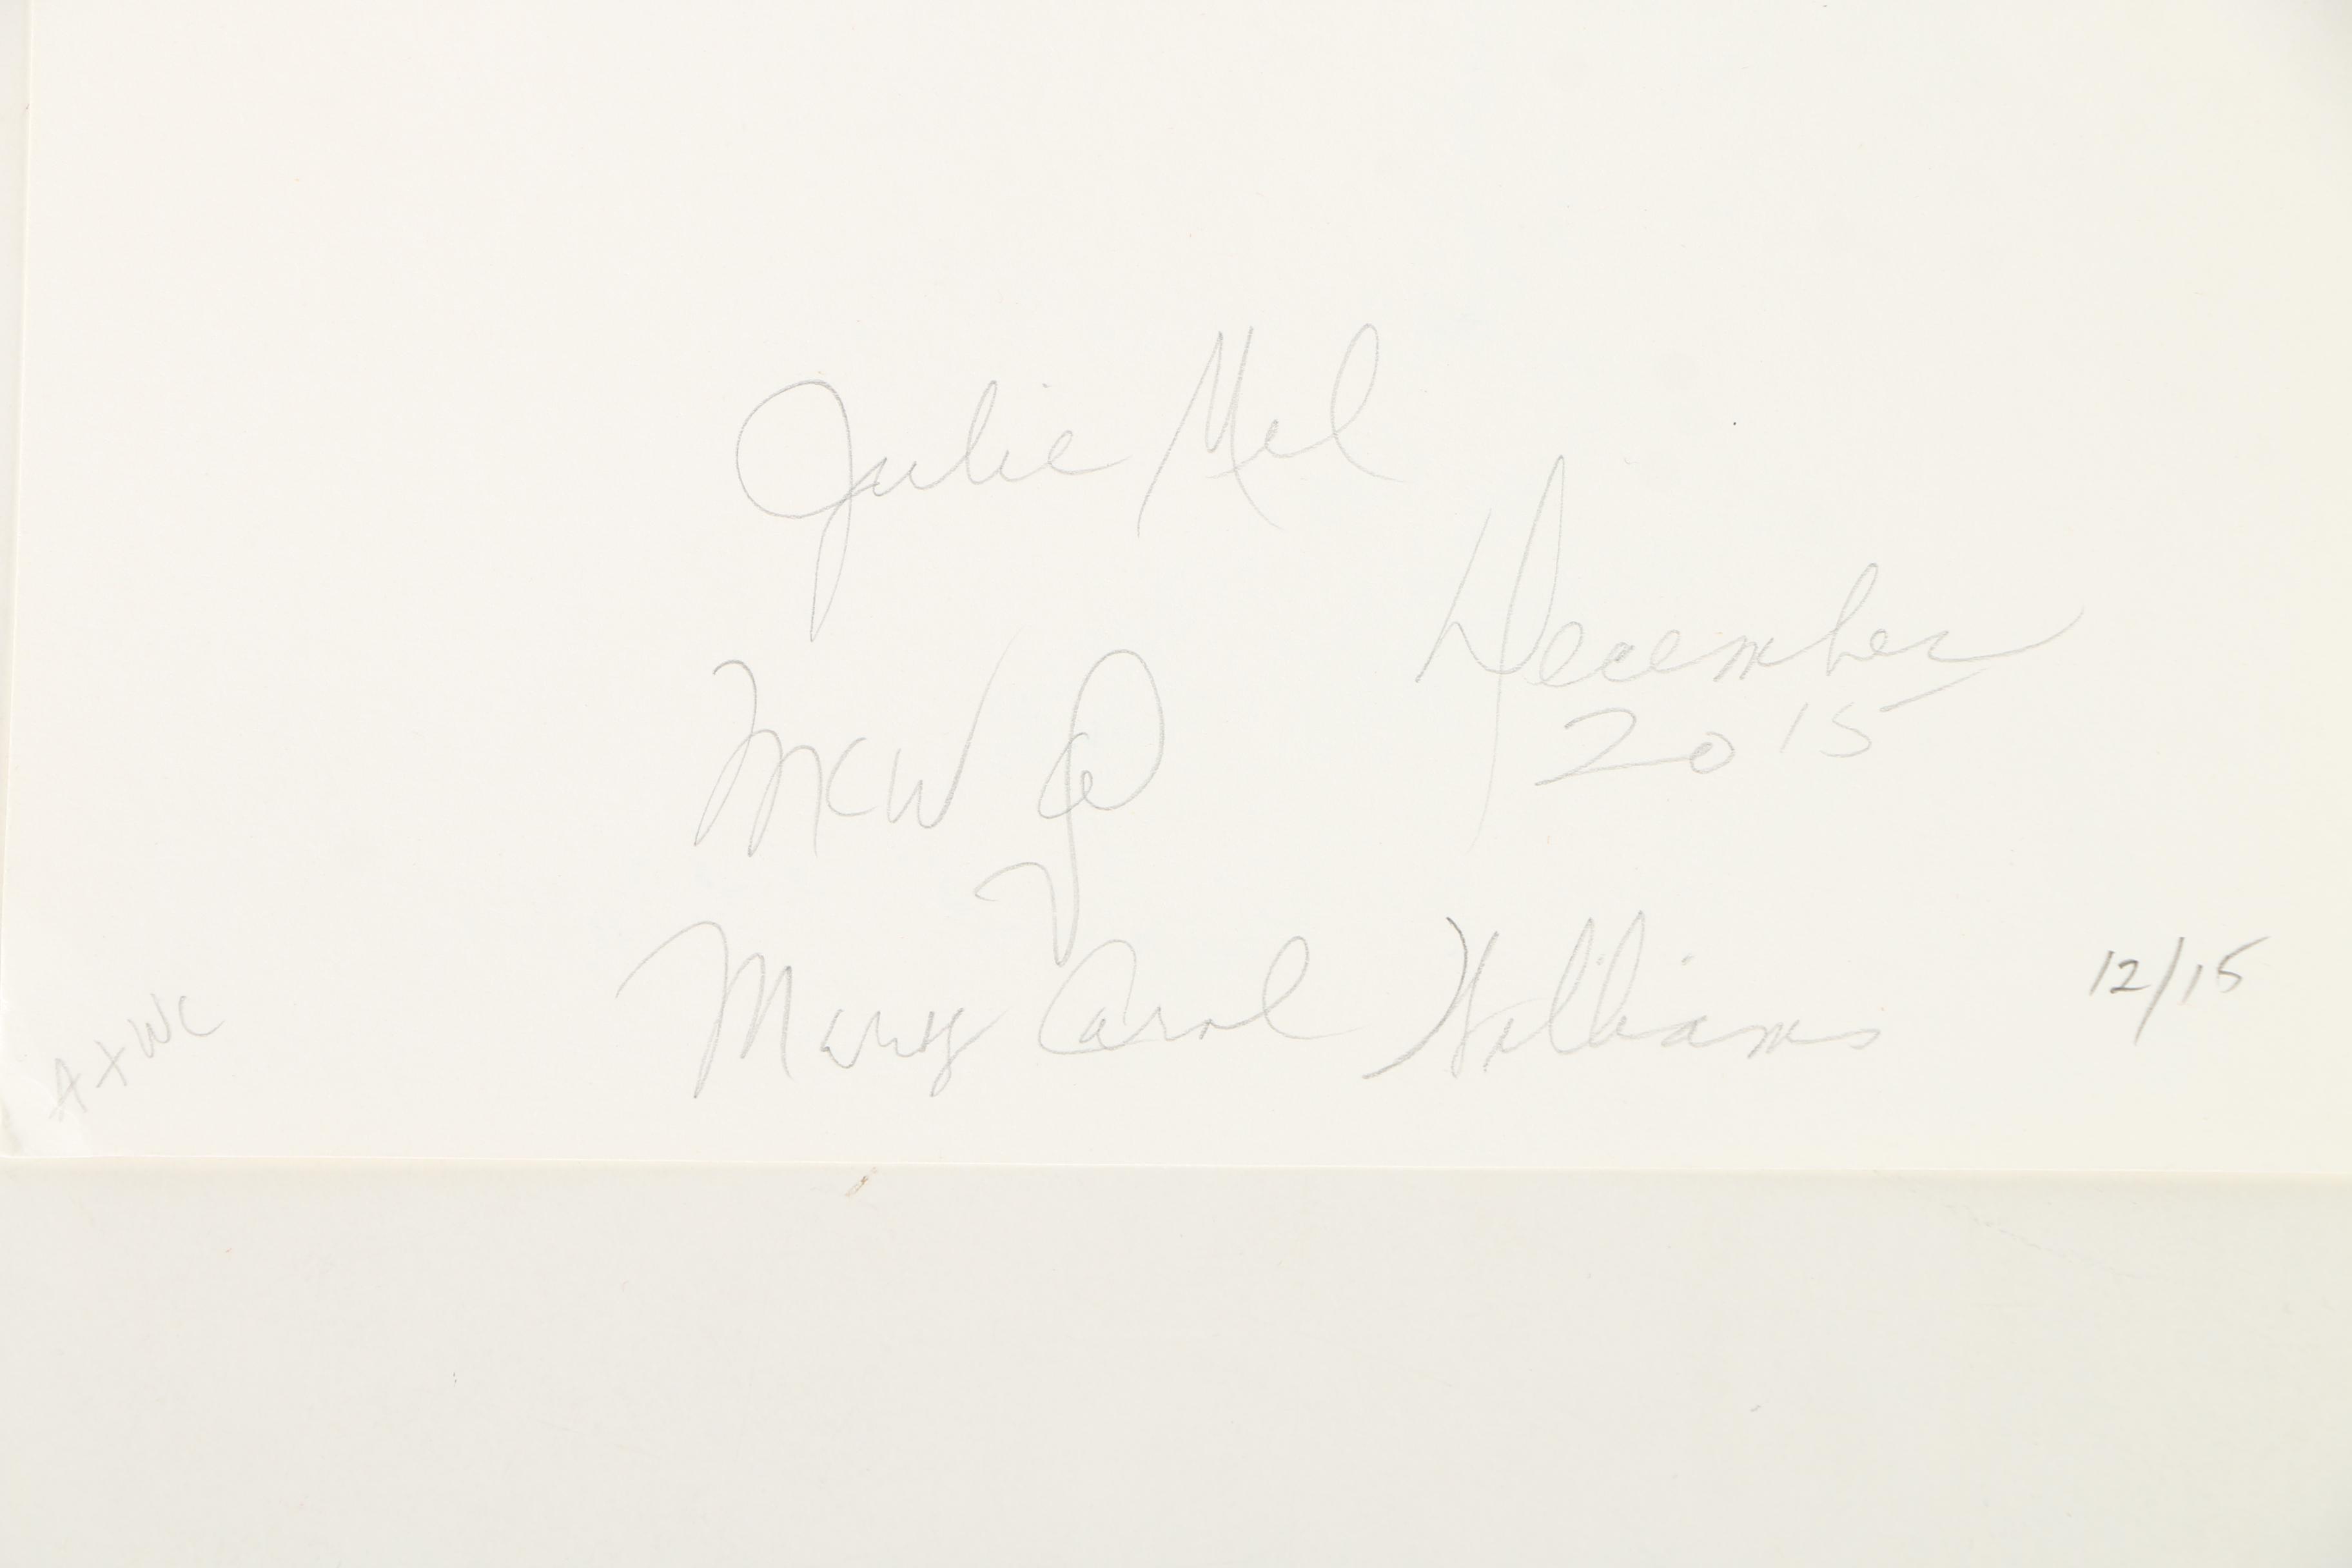 Julie Mel
December
2015
MCW
Mary Carol Williams
12/15
AXWC